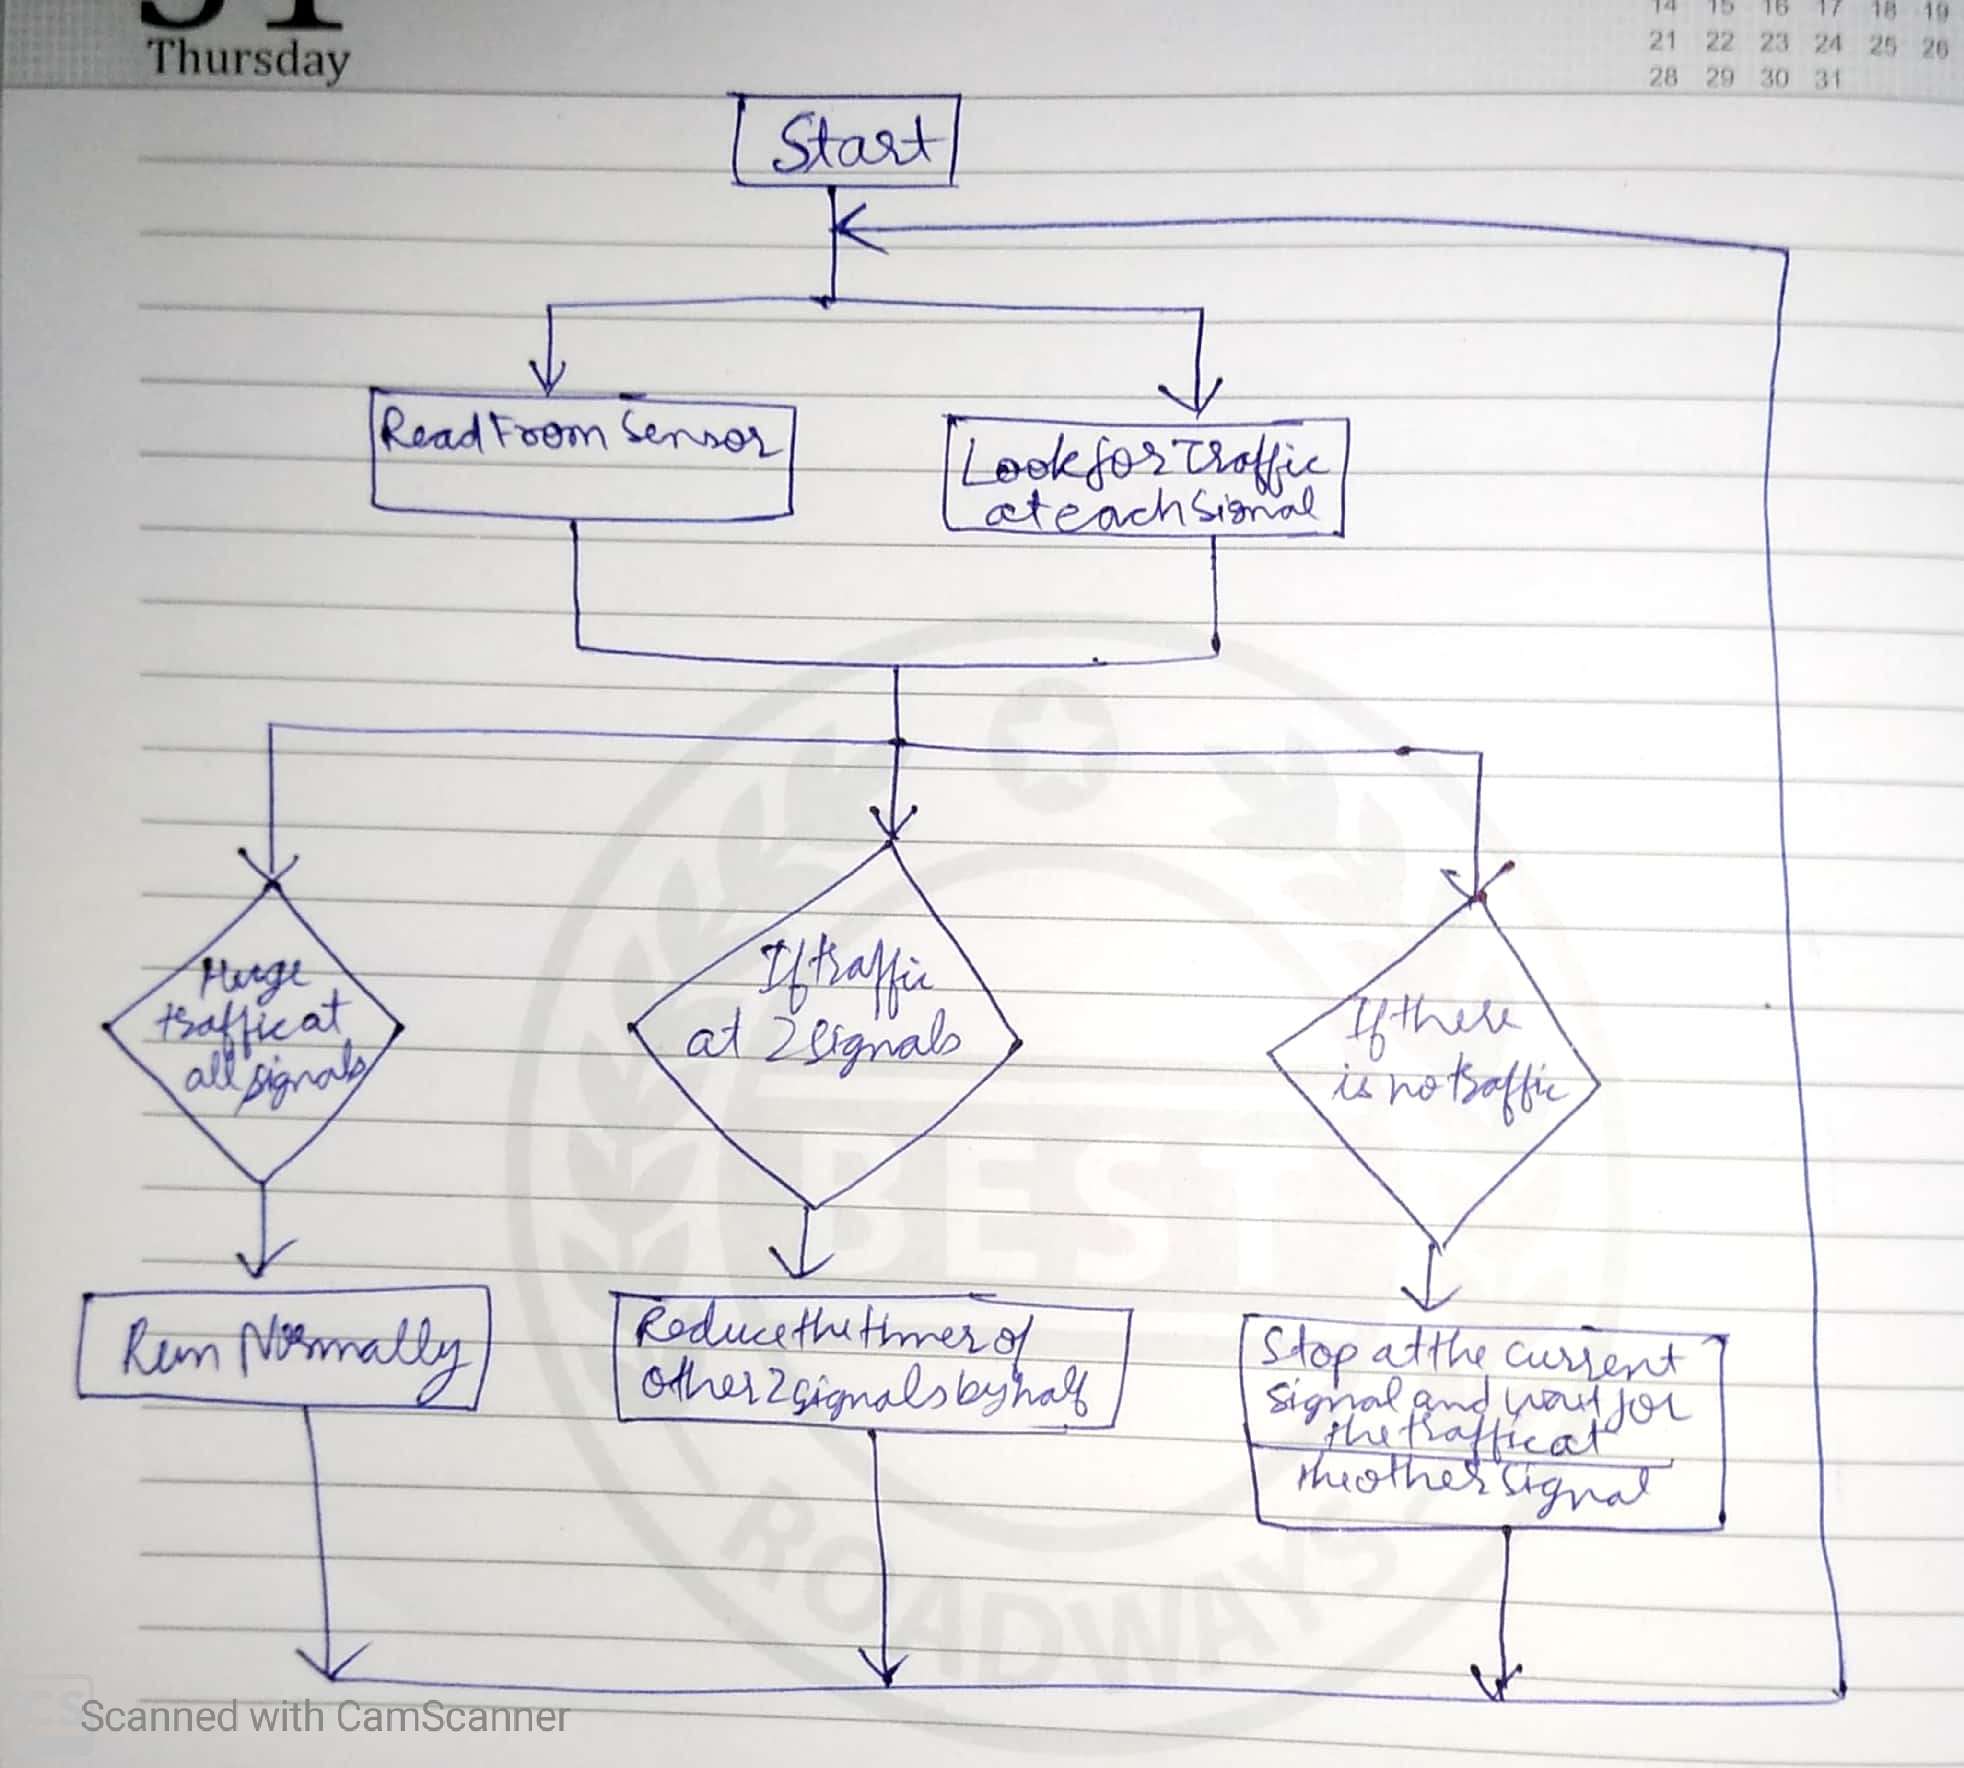 Thursday
14 15 16 17 18 19
21 22 23 24 25 26
28 29 30 31
Start
Read From Sensor
Look for Traffic
at each Signal
Huge
traffic at
all signals
If traffic
at 2 signals
If there
is no traffic
Run Normally
Reduce the timer of
other 2 signals by half
Stop at the current
signal and wait for
the traffic at
the other signal
BEST
ROADWAYS
CS
Scanned with CamScanner